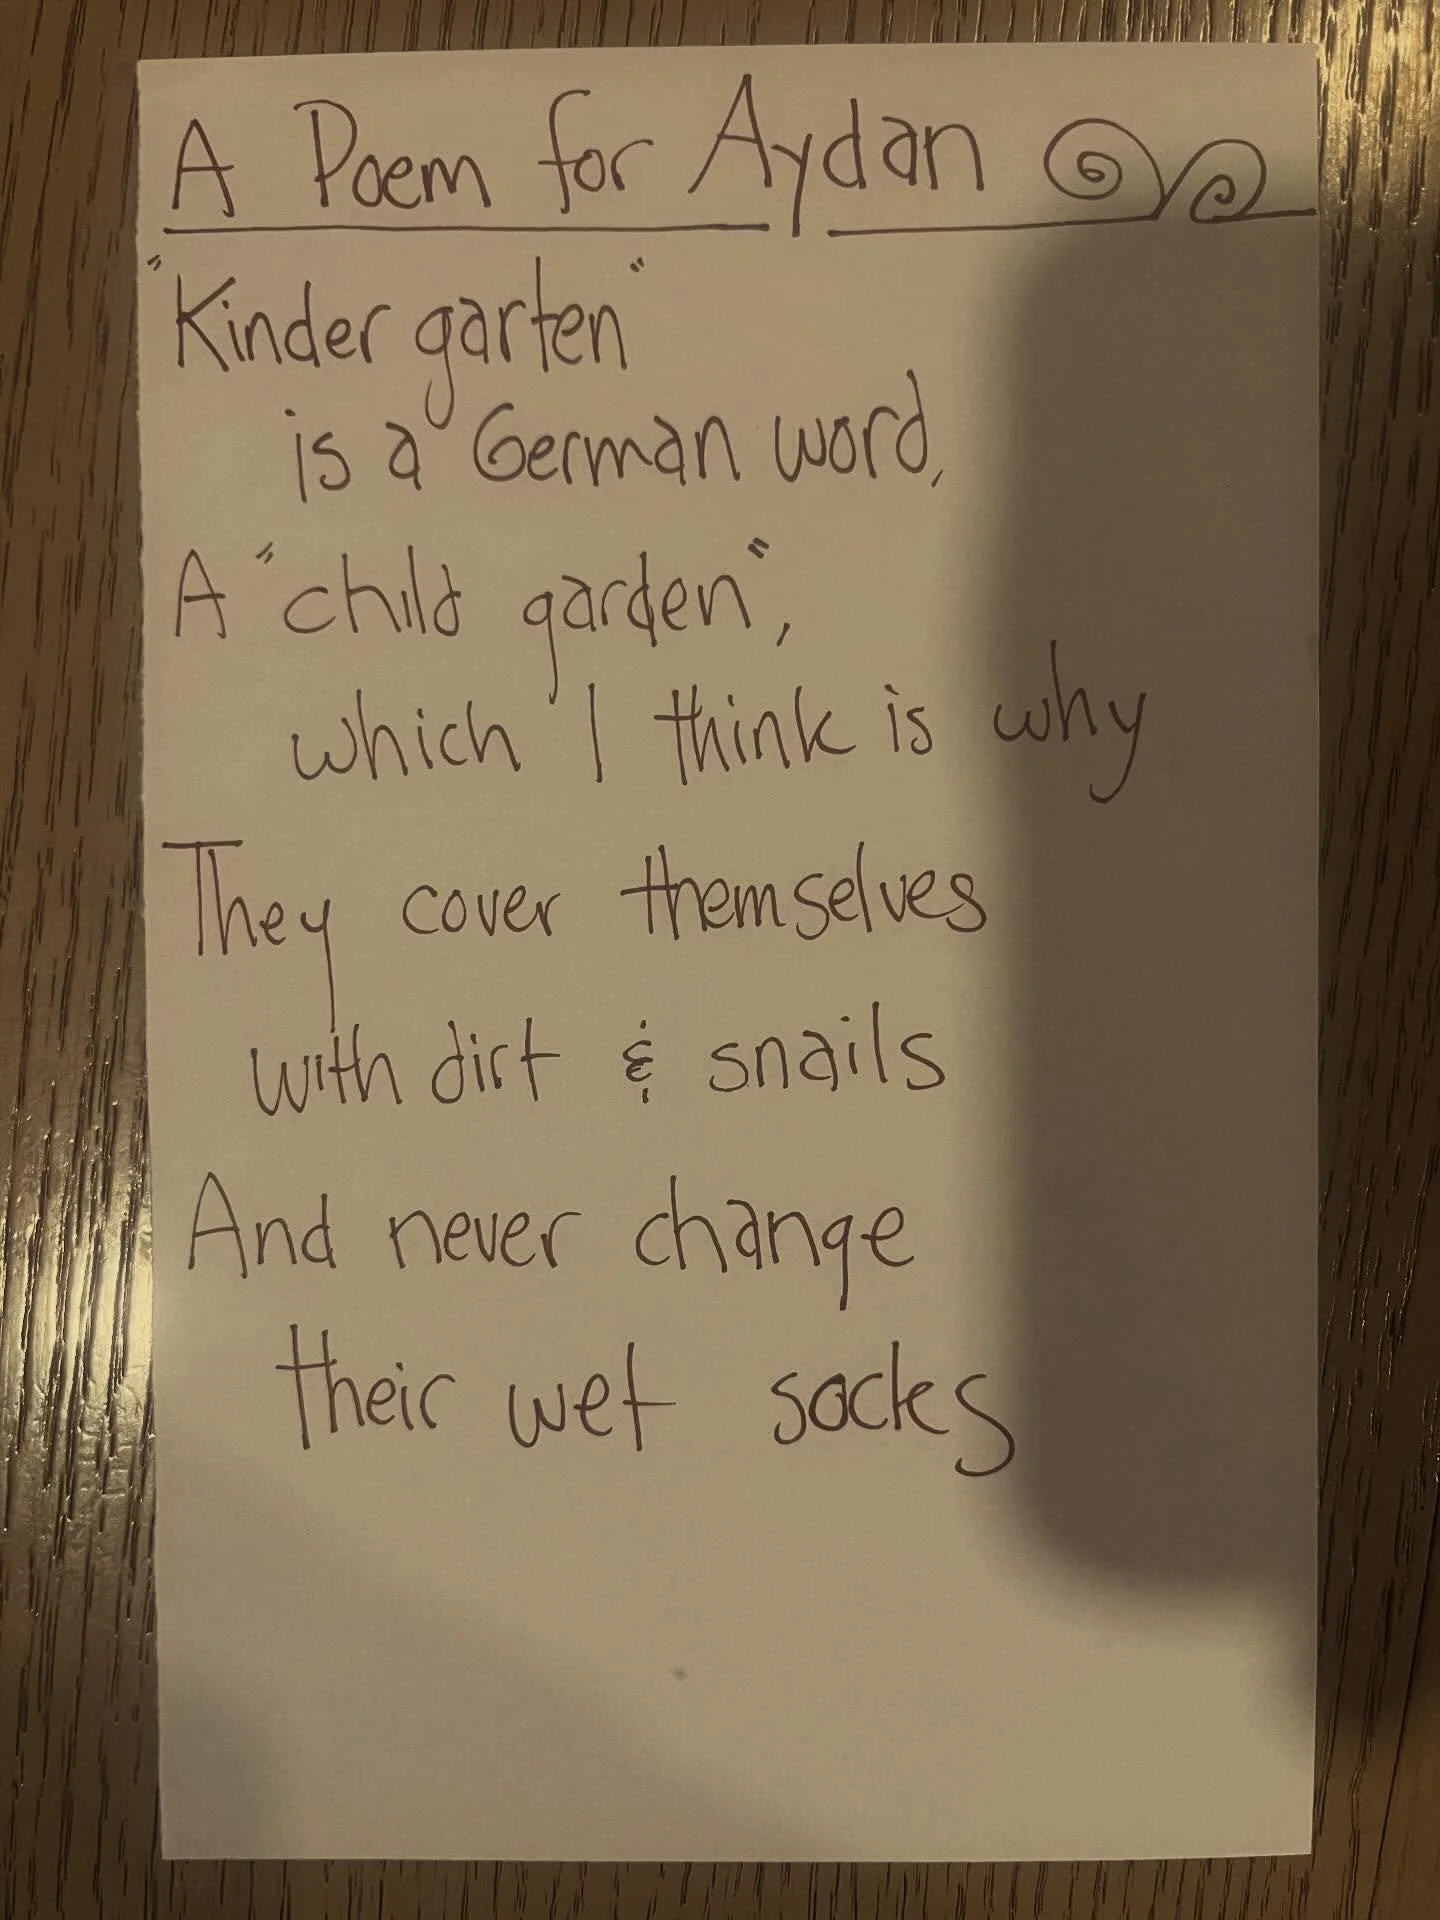 A Poem for Aydan
"Kinder garten"
is a German word,
A "child garden",
which I think is why
They cover themselves
with dirt & snails
And never change
their wet socks